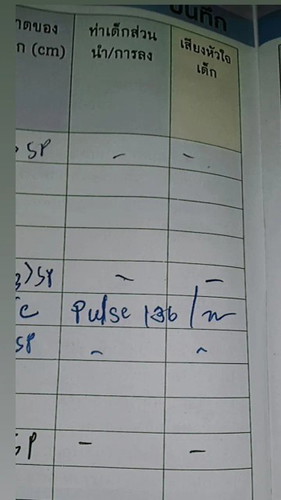 บันทึก
าดของ ท่าเด็กส่วน เสียงหัวใจ
ก (cm) นำ/การลง เด็ก
> SP - -
3>SP - -
c Pulse 136 /m
SP - -
SP - -